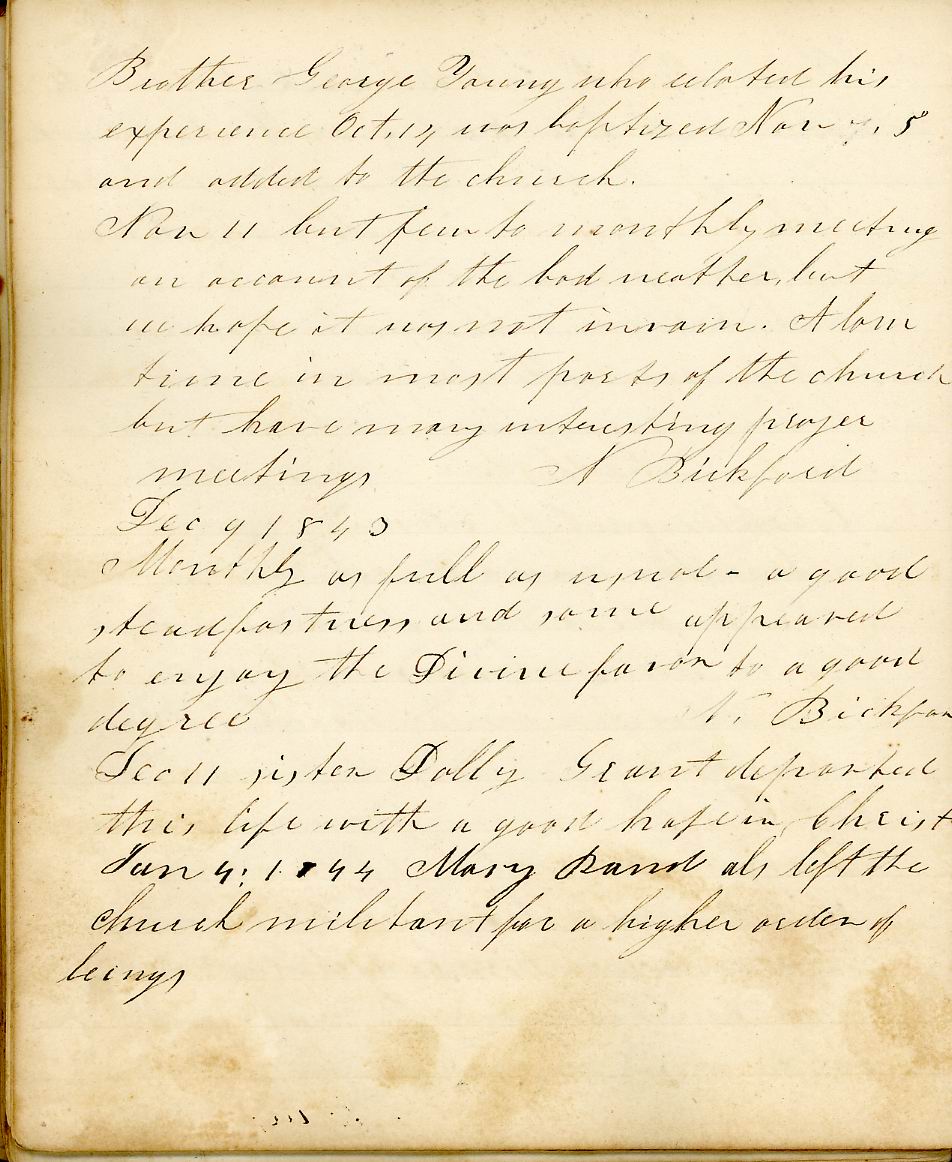 Brother George Young who related his
experience Oct. 14 was baptized Nov 5
and added to the church.
Nov 11 but few to monthly meeting
on account of the bad weather, but
we hope it was not in vain. A low
time in most parts of the church
but have many interesting prayer
meetings N Bickford
Dec 9 1843
Monthly as full as usual - a good
steadfastness and some appeared
to enjoy the Divine favor to a good
degree N. Bickfor
Dec 11 sister Dolly Grant departed
this life with a good hope in Christ
Jan 4: 1844 Mary Rand als left the
church militant for a higher order of
beings